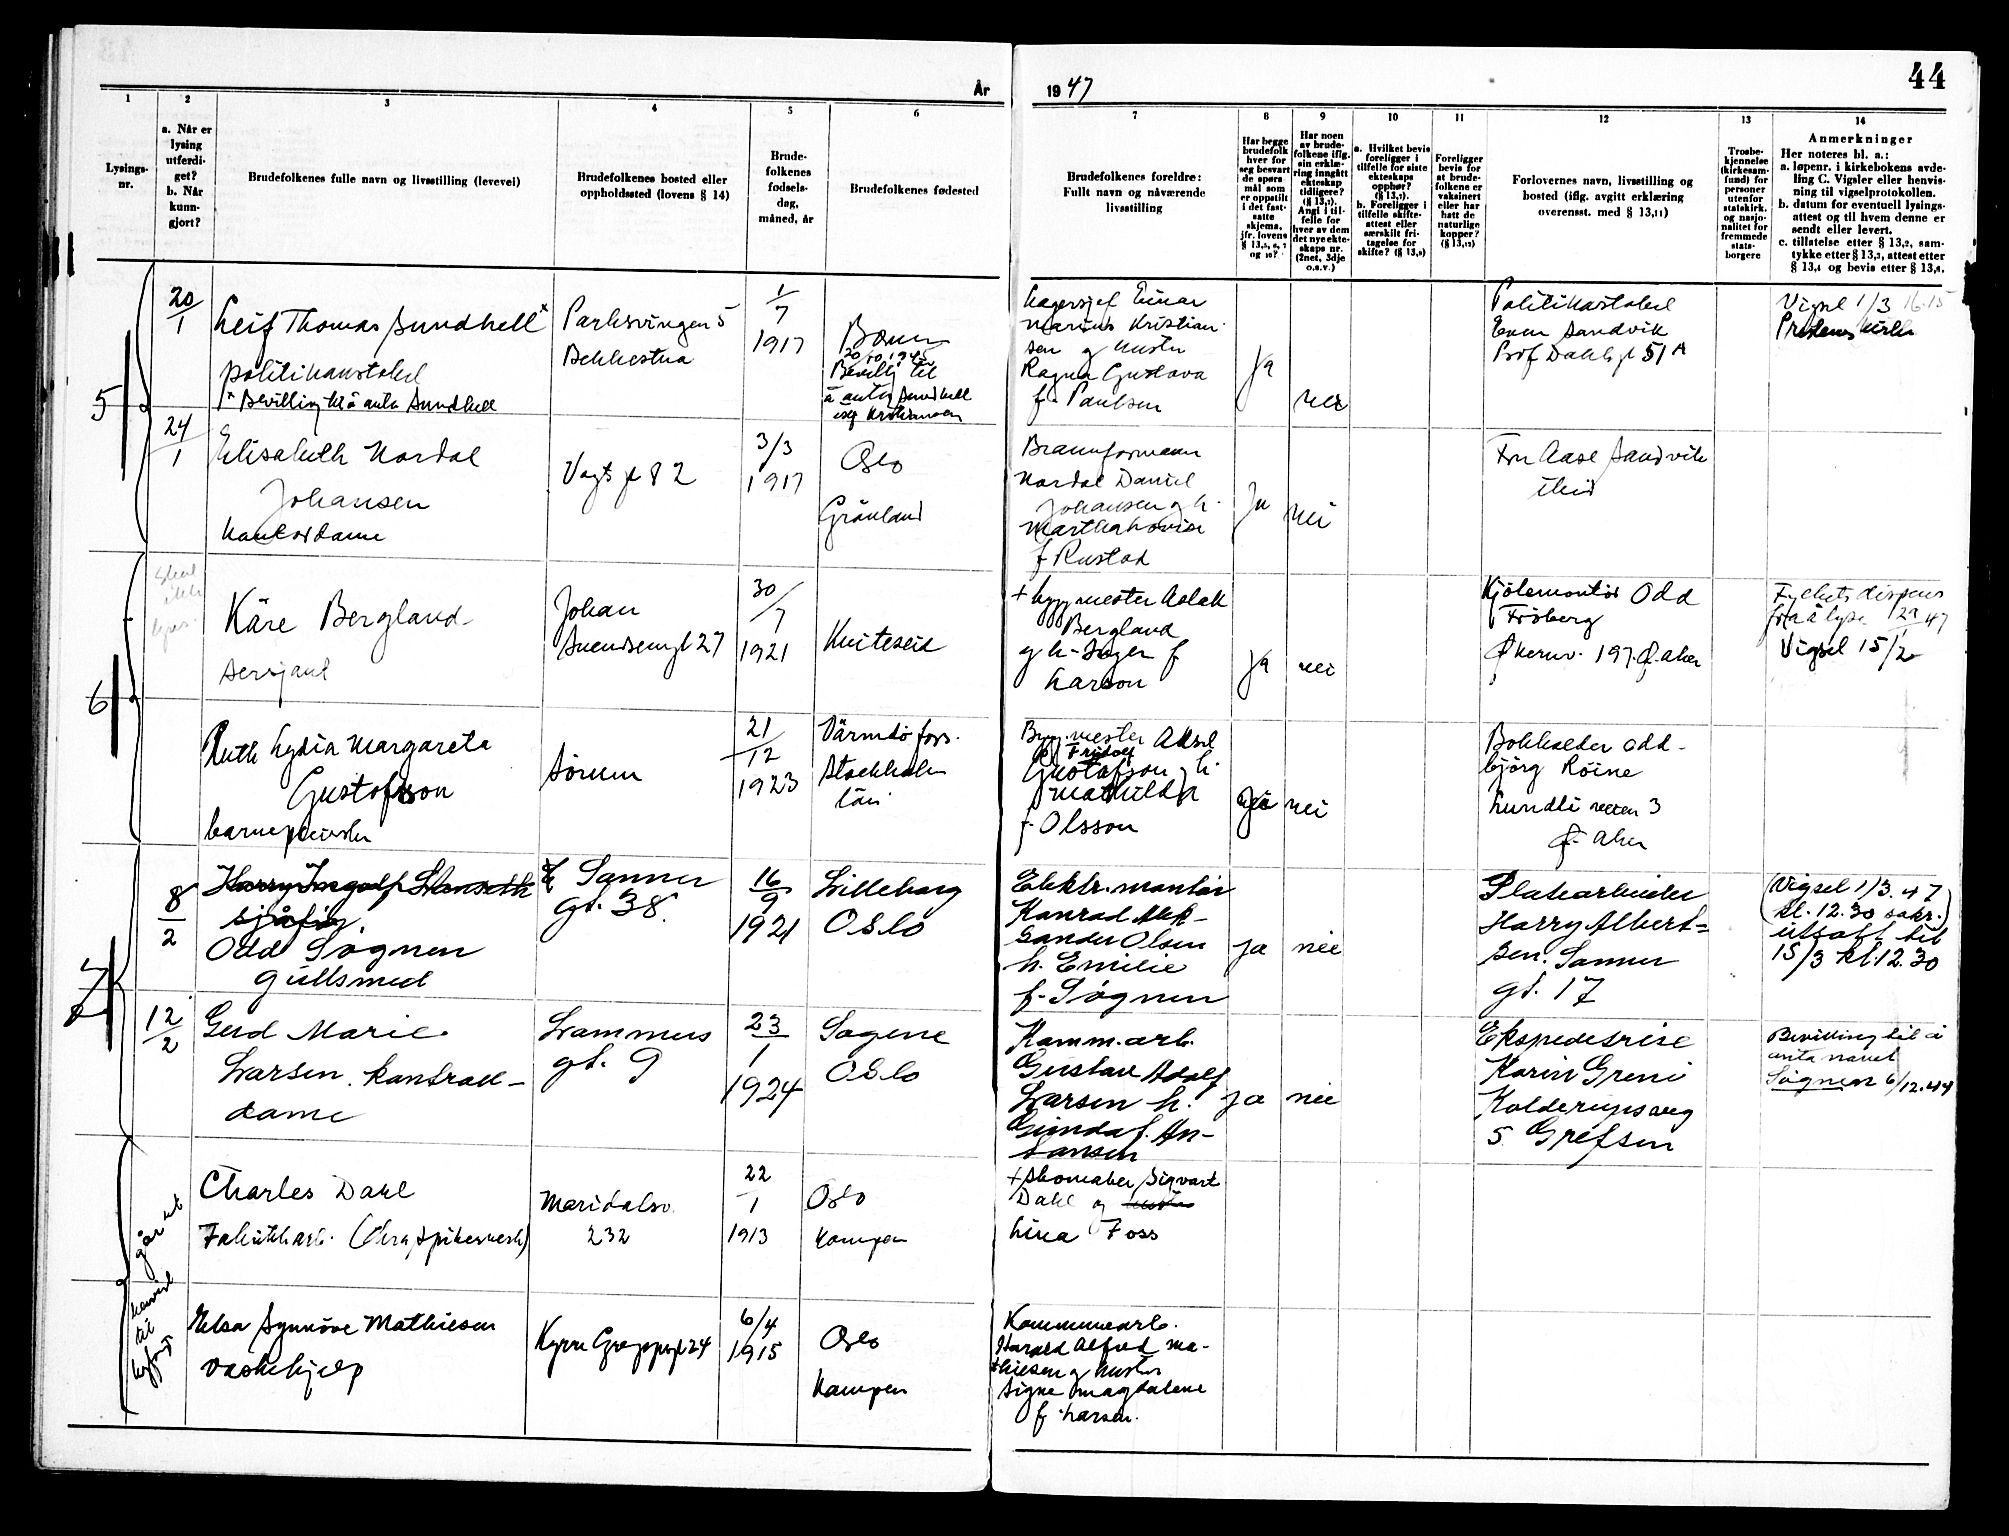 44
År
1947
1
2
3
4
5
6
7
8
9
10
11
12
13
14
Lysings-
nr.
a. Når er
lysing
utferdi-
get?
b. Når
kunn-
gjort?
Brudefolkenes fulle navn og livsstilling (levevei)
Brudefolkenes bosted eller
oppholdssted (lovens § 14)
Brude-
folkenes
fødsels-
dag,
måned, år
Brudefolkenes fødested
Brudefolkenes foreldre:
Fullt navn og nåværende
livsstilling
Har begge
brudefolk
hver for
seg besvart
de spørs-
mål som
er oppstilt
i det fast-
satte
skjema,
jfr. lovens
§ 13,5, 6, 7
og 10?
Har noen
av brude-
folkene iflg.
sin erklæ-
ring inngått
ekteskap
tidligere?
(§ 13,7).
Angi i til-
felle for
hver av dem
det nye ekte-
skaps nr.
(2net, 3dje
o.s.v.)
a. Hvilket bevis
foreligger i
tilfelle for siste
ekteskaps
opphør?
(§ 13,7).
b. Foreligger i
tilfelle skifte-
attest eller
særskilt fri-
tagelse for
skifte? (§ 13,8)
Foreligger
bevis for
at brude-
folkene er
vaksinert
eller har
hatt de
naturlige
kopper?
(§ 13,12)
Forlovernes navn, livsstilling og
bosted (iflg. avgitt erklæring
overensst. med § 13,11)
Trosbe-
kjennelse
(kirkesam-
fund) for
personer
utenfor
statskirk.
og nasjo-
nalitet for
fremmede
stats-
borgere
Anmerkninger
Her noteres bl. a.:
a. løpenr. i kirkebokens avde-
ling C. Vigsler eller henvis-
ning til vigselprotokollen.
b. datum for eventuell lysings-
attest og til hvem denne er
sendt eller levert.
c. tillatelse etter § 13,2, sam-
tykke etter § 13,3, attest etter
§ 13,4 og bevis etter § 13,6.
5
20/1
Leif Thomas Sundhell x
politikonstabel
x Bevilling til å anta Sundhell
Parksvingen 5
Bekkestua
1/7
1917
Bærum
20/10 1945
Bevillg til
å anta Sundhell
Lagersjef Einar
Marius Kristian-
sen og hustru
Ragna Gustava
f. Paulsen
Ja
nei
Politikonstabel
Even Sandvik
Prof Dahls gt 51 A
Vigsel 1/3 16.15
24/1
Elisabeth Nordal
Johansen
Kontordame
Vogts gt 82
3/3
1917
Oslo
Grønland
Brannformann
Nordal Daniel
Johansen og h.
Martha Lovise
f Rustad
Ja
nei
Fru Aase Sandvik
ibid
6
Skal
ikke
lyses.
Kåre Bergland
sersjant
Johan
Svendsensgt 27
30/7
1921
Kviteseid
+ byggmester Aslak
Bergland
og h. Inger f
Larson
Ja
nei
Kjølemontør Odd
Fröberg
Økernv. 197. Ø. Aker
Fylkets dispens
fra å lyse 29/1 47
Vigsel 15/2
Ruth Lydia Margareta
Gustofsson
barnepleierske
Sörum
21/12
1923
Värmdö förs.
Stockholms
län
Byggmester Aksel
Fridolf
Gustafson og h.
Mathilda
f. Olsson
Ja
nei
Bokholder Odd-
bjørg Röine
Lundliveien 3
Ø. Aker
7
8/2
Harry Ingolf
sjåfør
Odd Søgnen
gullsmed
Sanner
gt. 38.
16/9
1921
Lilleborg
Oslo
Elektr. montør
Konrad Alek-
sander Olsen
h. Emilie
f. Søgnen
ja
nei
Platearbeider
Harry Albert-
sen. Sanner
gt. 17
(Vigsel 1/3. 47
kl. 12.30 sakr.)
utsatt til
15/3 kl. 12.30
12/2
Gerd Marie
Larsen. kontor-
dame
Lammers
gt. 9
23/1
1924
Sagene
Oslo
Komm. arb.
Gustav Adolf
Larsen h.
Gunda f. An-
ja
nei
Ekspeditrise
Karin Greni
Kolderupsveg
5 Grefsen
Bevilling til å
anta navnet
Søgnen 6/12.44
Charles Dahl
Fabrikkarb. (Chra. Spikerverk)
Maridalsv.
232
22/1
1913
Oslo
Kampen
+ Skomaker Sigvart
Dahl og hustru
Lina Foss
går ut
henvist
til
byfogd
Elsa Synnöve Mathiesen
vaskehjelp
Kyrre Greppsgt 24
6/4
1915
Oslo
Kampen
Kommunearb.
Harald Alfred Ma-
thiesen og hustru
Signe Magdalene
f. Larsen.